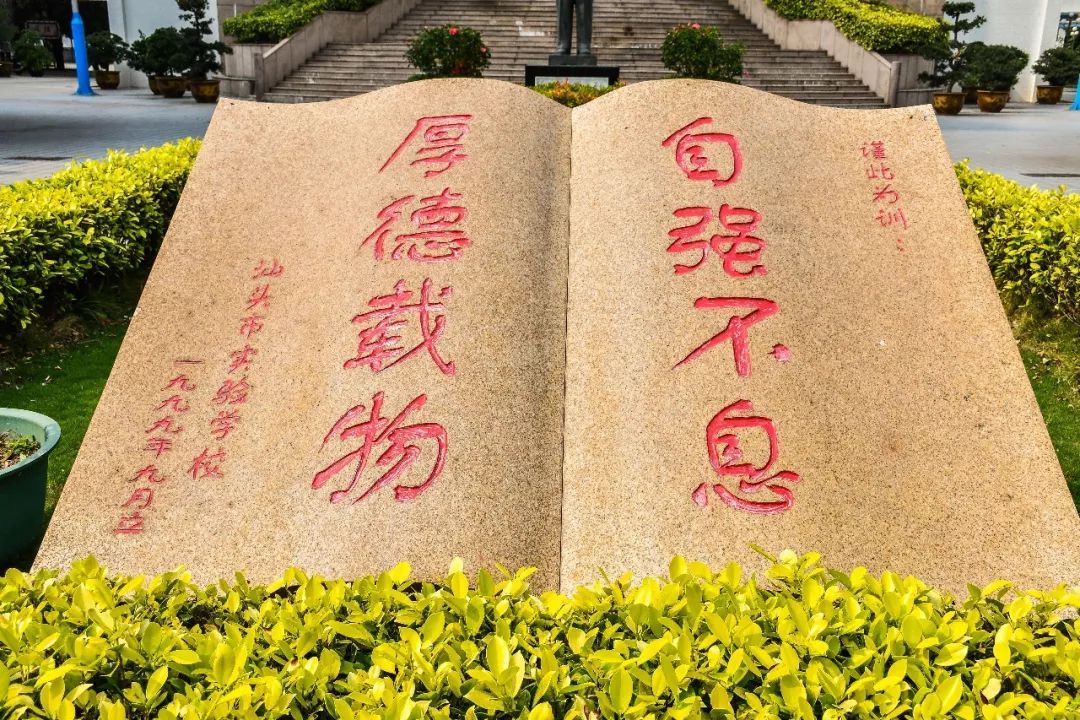 谨此为训：
自强不息
厚德载物
汕头市实验学校
一九九九年九月立